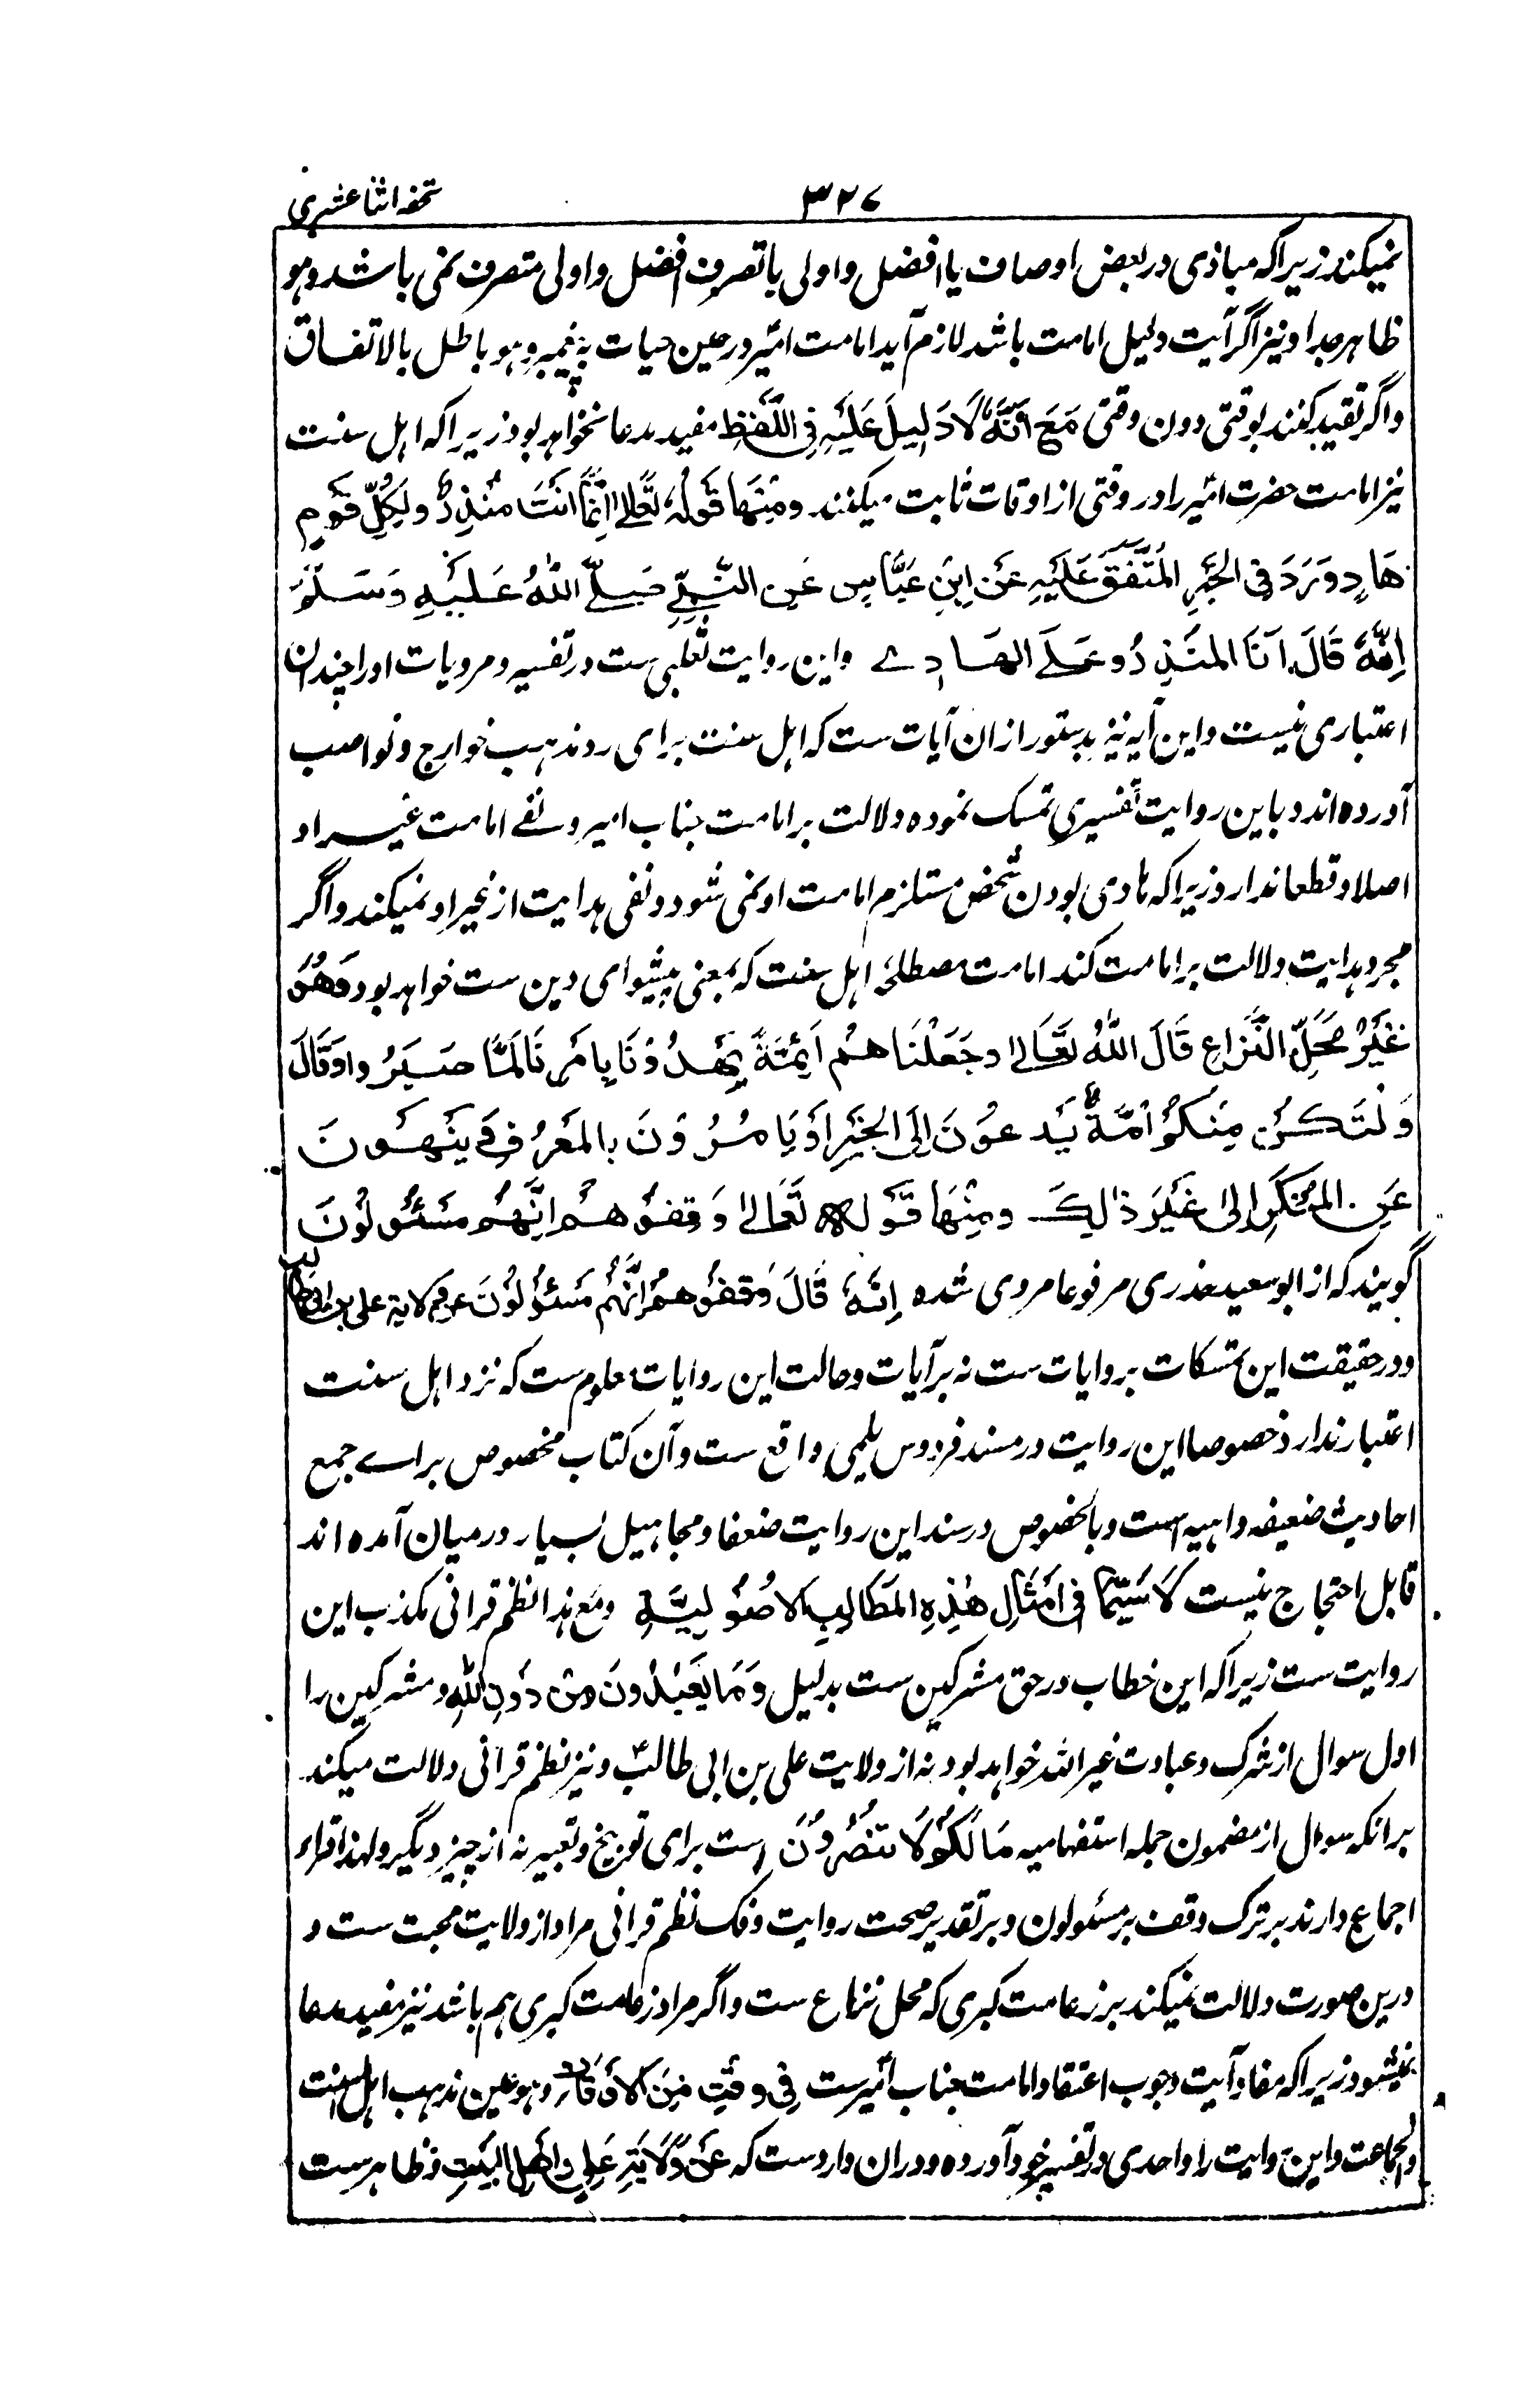 ۳۲۷
تحفه اثنا عشریه
نمیکند زیراکه مساوی در بعض اوصاف با افضل و اولی بالتصرف افضل و اولی متصرف نمی باشد و هو
ظاهر جدا و نیز اگر آیت دلیل امامت باشد لازم آید امامت امیر در عین حیات پیغمبر و هو باطل بالاتفاق
و اگر تقیید کنند بوقتی دون وقتی مَعَ اَنَّهُ لَا دَلِیلَ عَلَیهِ فِی اللَّفظِ مفید مدعا نخواهد بود زیراکه اهل سنت
نیز امامت حضرت امیر را در وقتی از اوقات ثابت میکنند وَمِنهَا قَولُهُ تَعَالٰی اِنَّمَا اَنتَ مُنذِرٌ وَلِکُلِّ قَومٍ
هَادٍ وَرَدَ فِی الخَبَرِ المُتَّفَقِ عَلَیهِ عَن اِبنِ عَبَّاسٍ عَنِ النَّبِیِّ صَلَّی اللّٰهُ عَلَیهِ وَسَلَّمَ
اِنَّهُ قَالَ اَنَا المُنذِرُ وَعَلِیٌّ الهَادِے واین روایت ثعلبی ست در تفسیر و مرویات او را چندان
اعتباری نیست و این آیه نیز بدستور ازان آیات ست که اهل سنت برای رد مذهب خوارج و نواصب
آورده اند و باین روایت تفسیری تمسک نموده دلالت بر امامت جناب امیر و نفے امامت غیر او
اصلا و قطعا ندارد زیراکه هادی بودن شخص مستلزم امامت او نمی شود و نفی هدایت از غیر او نمیکند و اگر
مجرد هدایت دلالت بر امامت کند امامت مصطلحۂ اهل سنت که بمعنی پیشوای دین ست خواهد بود وَهُوَ
غَیرُ مَحَلِّ النِّزَاعِ قَالَ اللّٰهُ تَعَالٰی وَجَعَلنَاهُم اَئِمَّةً یَهدُونَ بِاَمرِنَا لَمَّا صَبَرُوا وَقَالَ
وَلتَکُن مِنکُم اُمَّةٌ یَدعُونَ اِلَی الخَیرِ وَیَامُرُونَ بِالمَعرُوفِ وَیَنهَونَ
عَنِ المُنکَرِ اِلٰی غَیرِ ذٰلِکَ وَمِنهَا قَولُهُ تَعَالٰی وَقِفُوهُم اِنَّهُم مَسئُولُونَ
گویند که از ابو سعید خدری مرفوعا مروی شده اِنَّهُ قَالَ وَقِفُوهُم اِنَّهُم مَسئُولُونَ عن ولایة علی بن ابی طالب
و در حقیقت این تمسکات بروایات ست نه بر آیات و حالت این روایات معلوم ست که نزد اهل سنت
اعتبار ندارد خصوصا این روایت در مسند فردوس دیلمی واقع ست و آن کتاب مخصوص براے جمع
احادیث ضعیفه واهیه است و بالخصوص در سند این روایت ضعفا و مجاهیل بسیار در میان آمده اند
قابل احتجاج نیست لَا سِیَّمَا فِی اَمثَالِ هٰذِهِ المَطَالِبِ الاُصُولِیَّةِ و مع هذا نظم قرانی مکذب این
روایت ست زیراکه این خطاب در حق مشرکین ست بدلیل وَمَا یَعبُدُونَ مِن دُونِ اللّٰهِ و مشرکین را
اول سوال از شرک و عبادت غیر الله خواهد بود نه از ولایت علی بن ابی طالبؑ و نیز نظم قرانی دلالت میکند
برانکه سوال از مضمون جمله استفهامیه مَا لَکُم لَا تَنَصَرُونَ است برای توبیخ و تعییر نه از چیز دیگر و لهذا قراء
اجماع دارند بر ترک وقف بر مسئولون و بر تقدیر صحت روایت و فک نظم قرانی مراد از ولایت محبت ست و
درین صورت دلالت نمیکند بر زعامت کبری که محل نزاع ست و اگر مراد زعامت کبری هم باشد نیز مفید مدعا
نمیشود زیراکه مفاد آیت وجوب اعتقاد امامت جناب امیر ست فِی وَقتٍ مِنَ الاَوقَاتِ و هو عین مذهب اهل السنت
والجماعت و این روایت را واحدی در تفسیر خود آورده و دران وارد ست که عَن وَلَایَةِ عَلِیٍّ وَاَهلِ البَیتِ و ظاهر ست